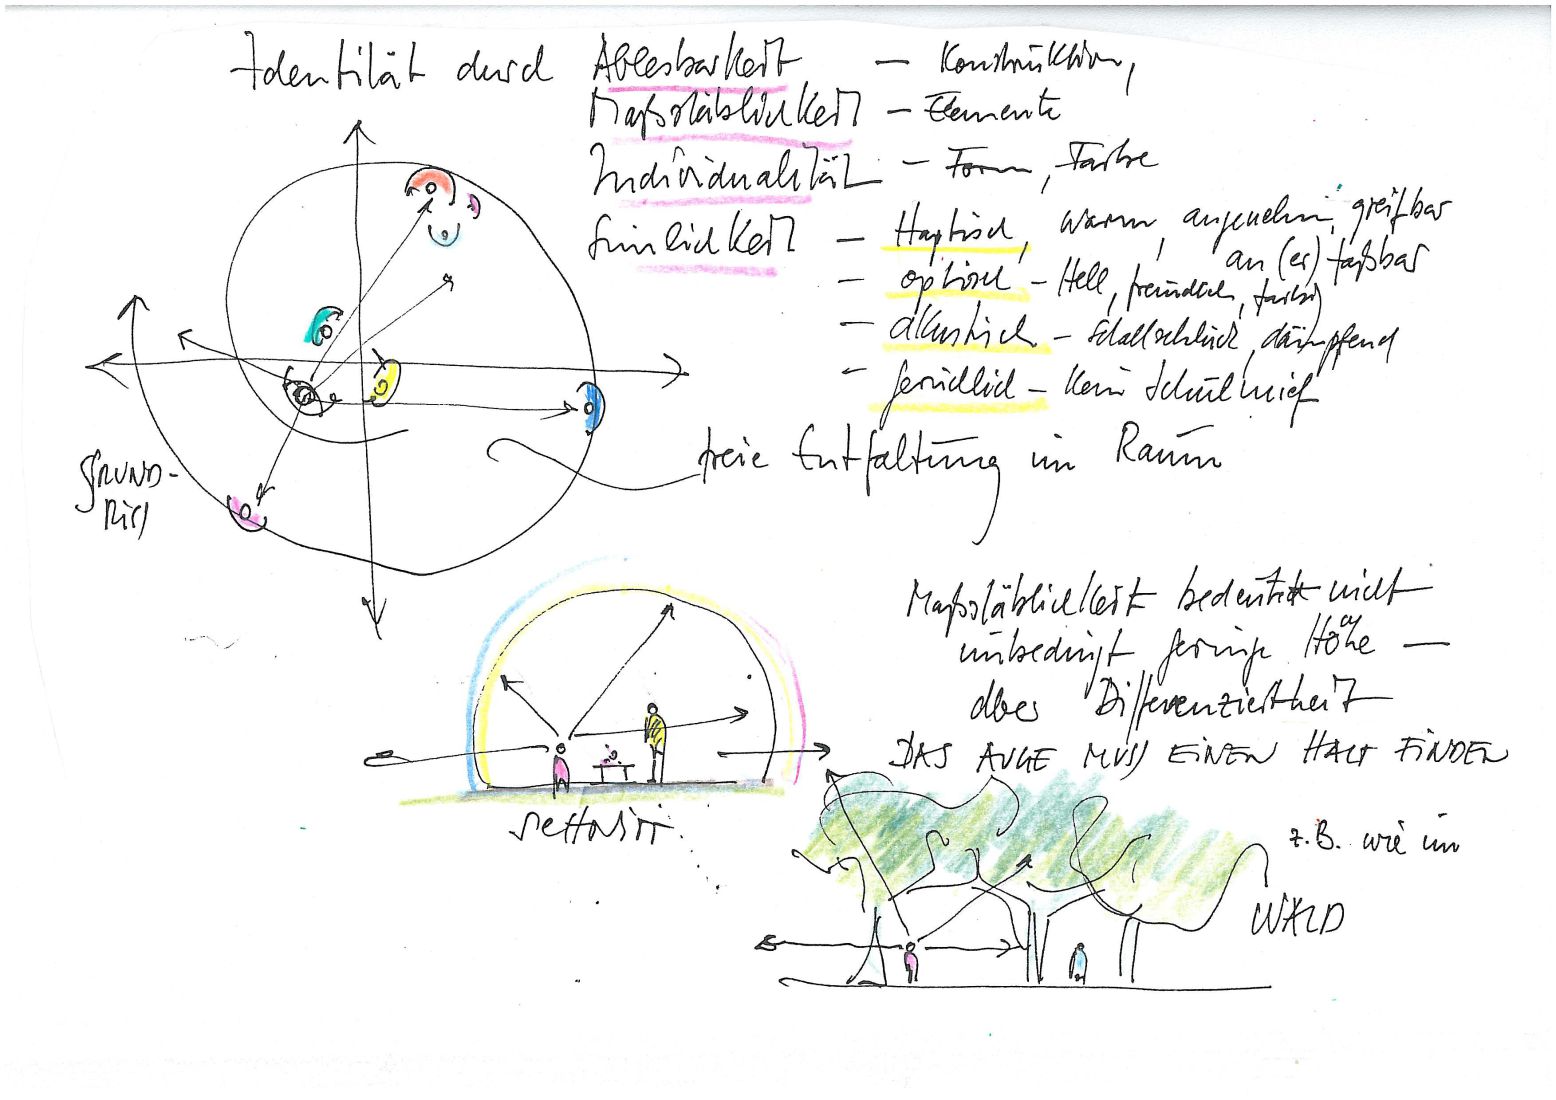 Identität durch Ablesbarkeit – Konstruktion,
Maßstäblichkeit – Elemente
Individualität – Form, Farbe
Sinnlichkeit – Haptisch, warm, angenehm, greifbar
an (er) faßbar
– optisch – Hell, freundlich, farbig
– akustisch – Schallschluck, dämpfend
– geruchlich – kein Schulmief
freie Entfaltung im Raum
GRUND-
RISS
Maßstäblichkeit bedeutet nicht
unbedingt geringe Höhe –
aber Differenziertheit
DAS AUGE MUSS EINEN HALT FINDEN
SCHNITT
z.B. wie im
WALD